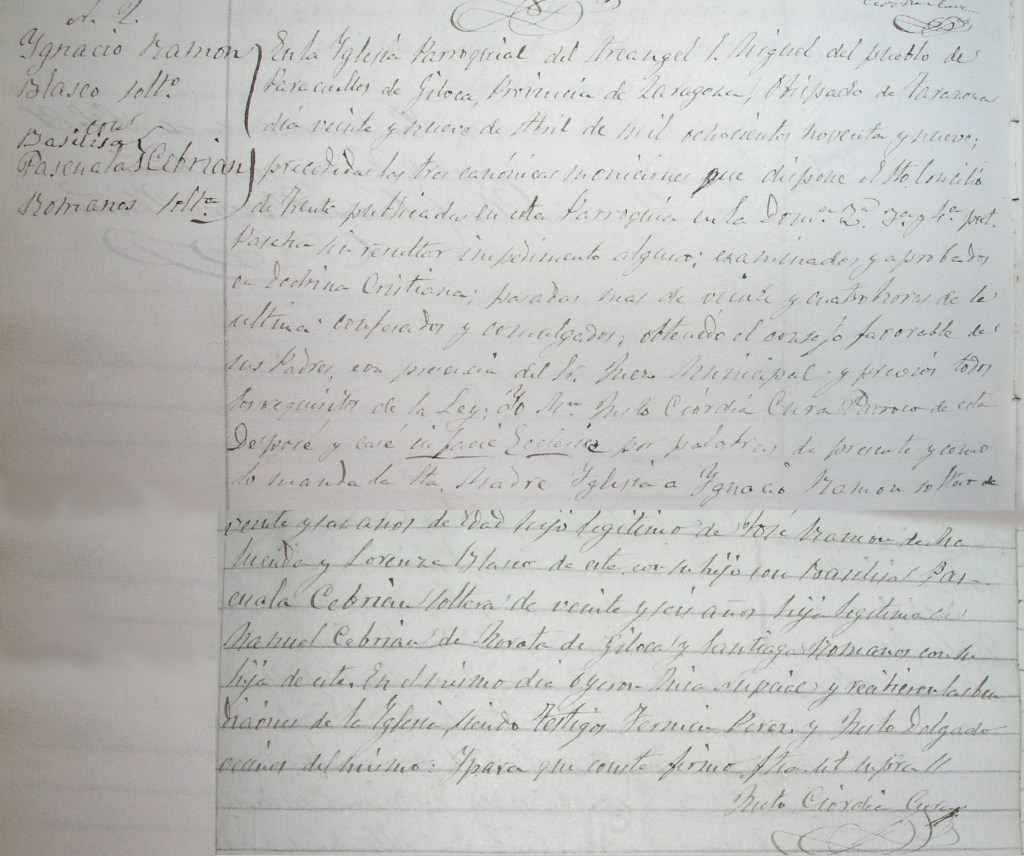 N. 2.
Ygnacio Ramon
Blasco solto.
con
Basilisa
Pascuala Cebrian
Romanos solta.
En la Yglesia Parroquial del Arcangel S. Miguel del pueblo de
Paracuellos de Giloca, Provincia de Zaragoza, Obispado de Tarazona
dia veinte y nueve de Abril de mil ochocientos noventa y nueve;
precedidas las tres canónicas moniciones que dispone el Sto. Concilio
de Trento publicadas en esta Parroquia en la Doma. 2a. 3a. y 4a. post.
Pascha sin resultar impedimento alguno; examinados y aprobados
en doctrina Cristiana; pasadas mas de veinte y cuatro horas de la
ultima confesados y comulgados, obtenido el consejo favorable de
sus Padres, con presencia del Sr. Juez Municipal y previos todos
los requisitos de la Ley; Yo Mn. Justo Ciórdia Cura Párroco de esta
Desposé y casé in facie Eclesie por palabras de presente y como
lo manda la Sta. Madre Yglesia a Ygnacio Ramon soltero de
veinte y seis años de edad hijo legitimo de José Ramon de
y Lorenza Blasco de este con su hijo con Basilisa Pas-
cuala Cebrian soltera de veinte y seis años hija legitima de
Manuel Cebrian de Morata de Giloca y Santiaga Romanos con su
hija de este. En el mismo dia oyeron Misa nupcial y recibieron las ben
diciones de la Yglesia, siendo testigos Perez y Justo Delgado
vecinos del mismo: Y para que conste firmo fha. ut supra //
Justo Ciórdia Cura